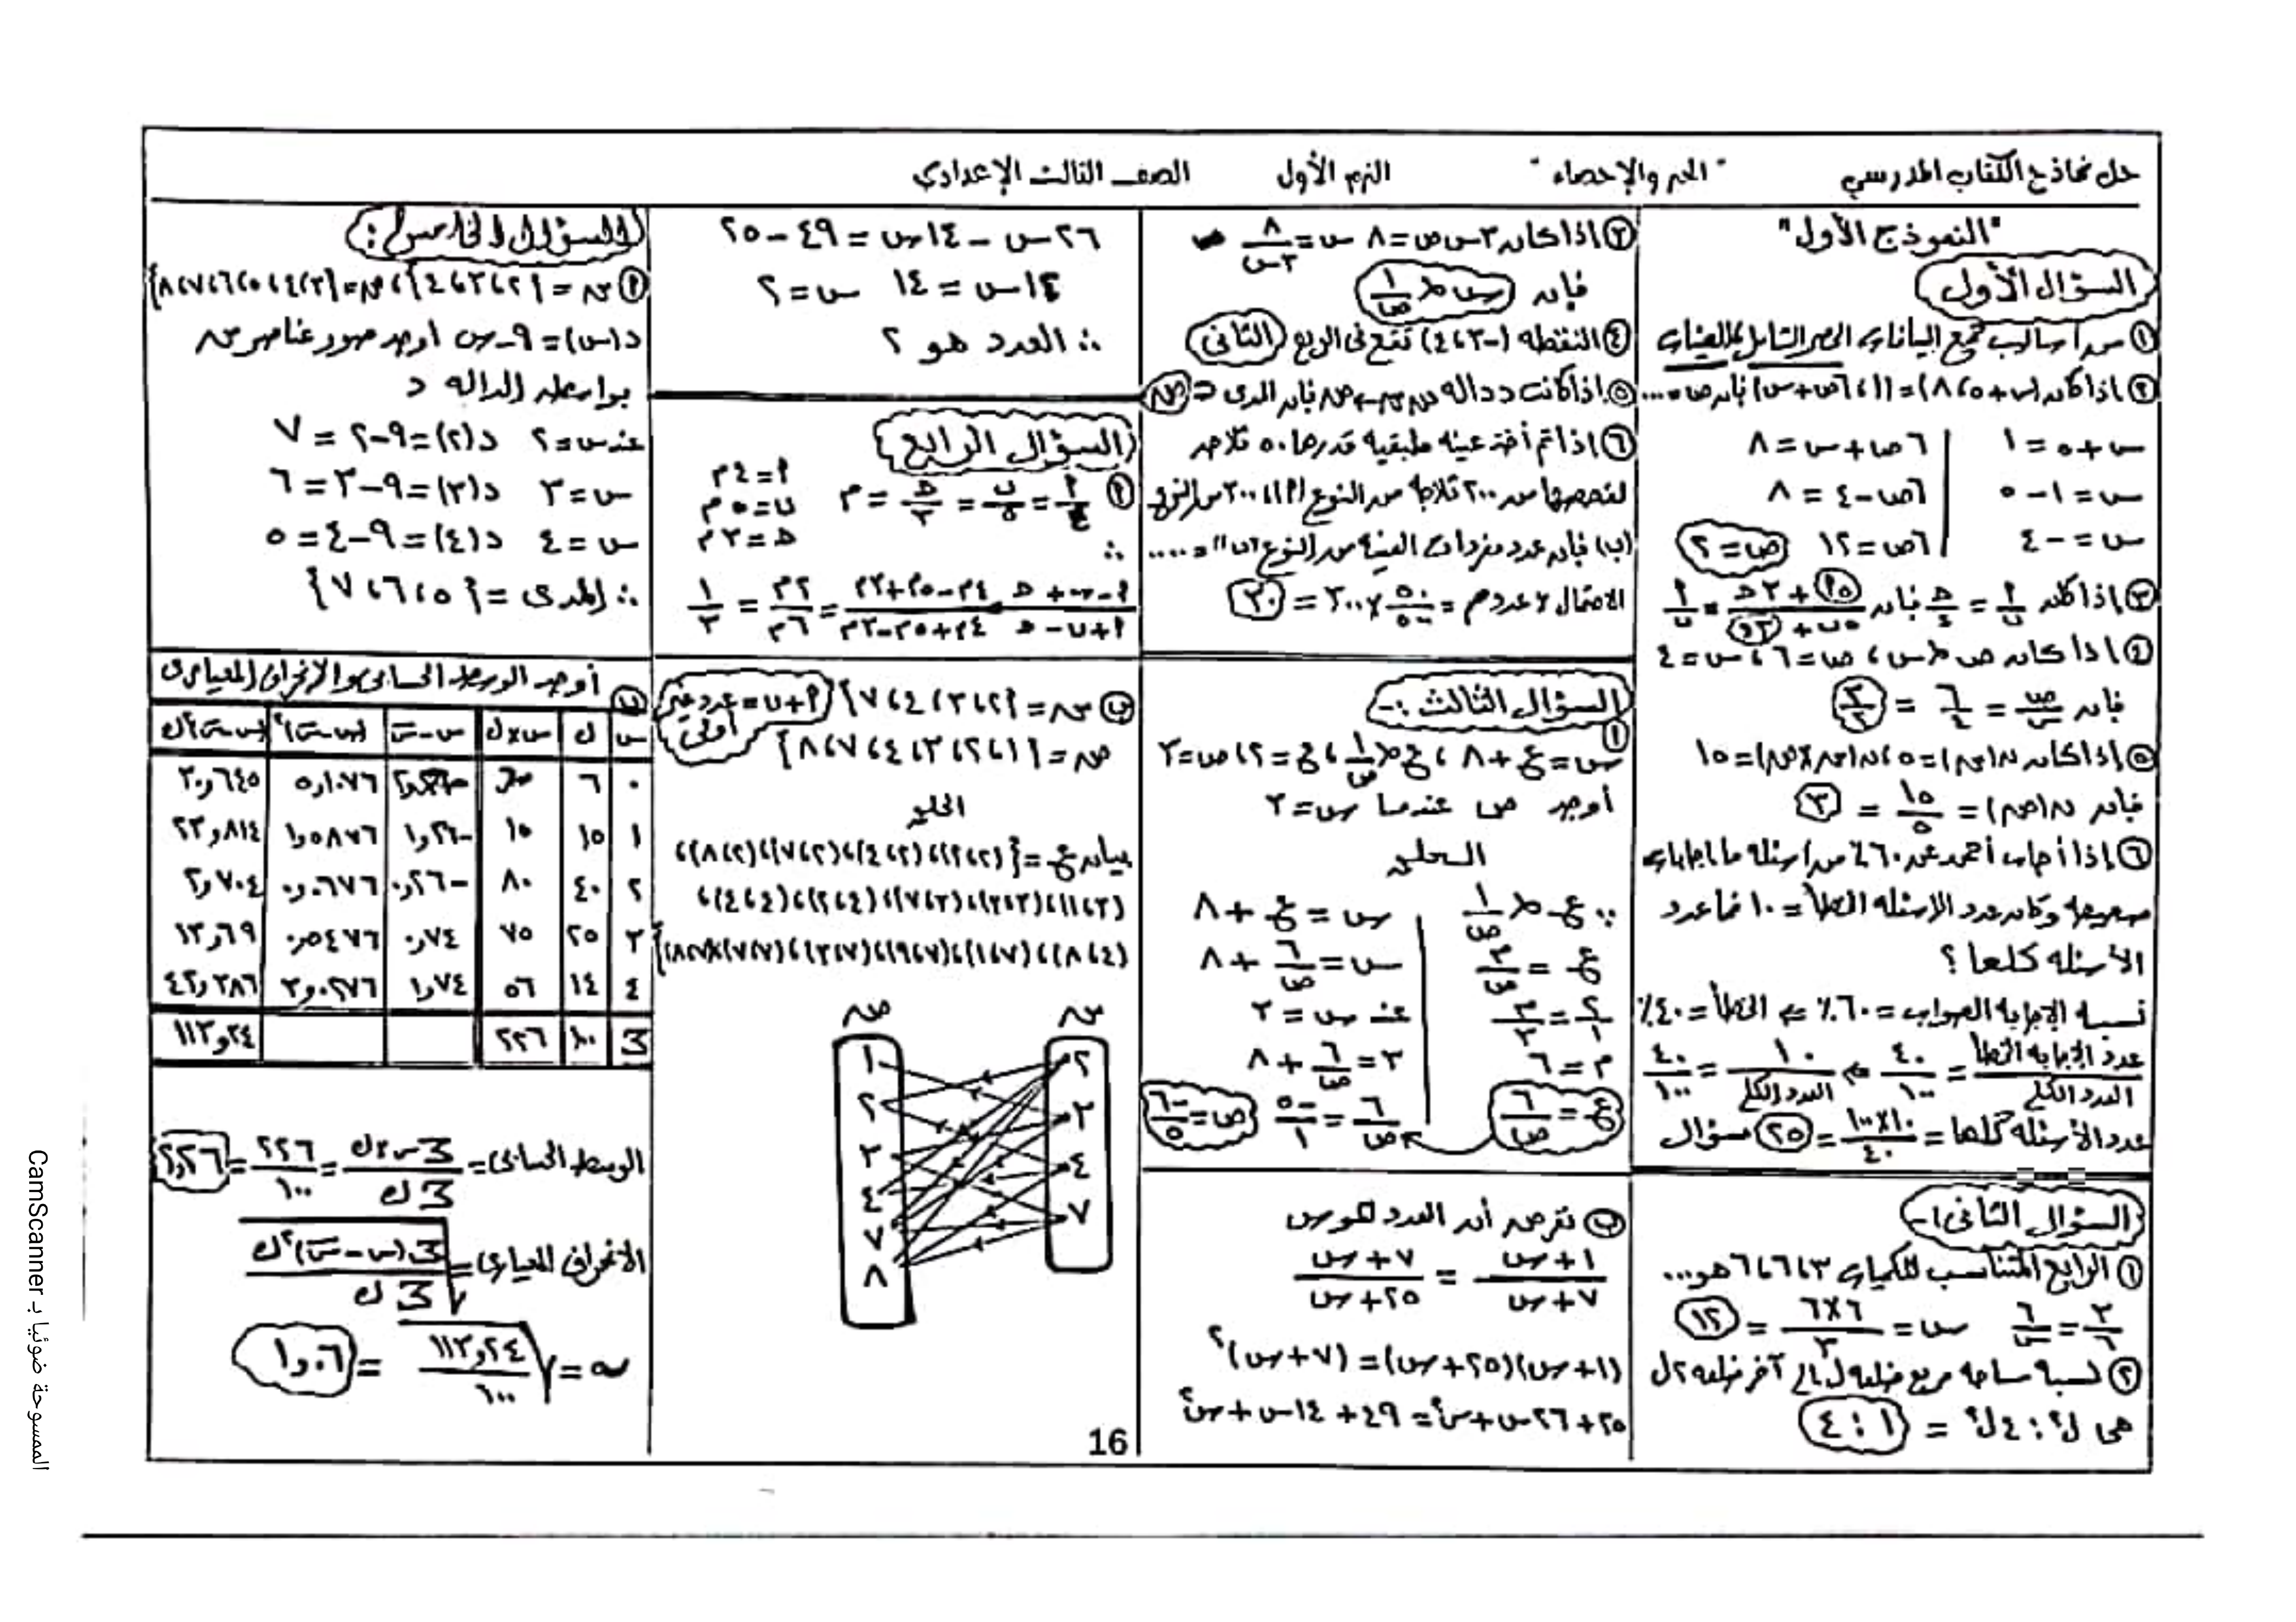 حل نماذج الكتاب المدرسي "الجبر والإحصاء" الترم الأول الصف الثالث الإعدادي
"النموذج الأول"
السؤال الأول
① من أساليب جمع البيانات الحصر الشامل والعينات
② إذا كان (س+٥، ٨) = (١، ٦ص+س) فإن ص = ....
س+٥ = ١ | ٦ص+س = ٨
س = ١-٥ | ٦ص-٤ = ٨
س = -٤ | ٦ص = ١٢ ص = ٢
③ إذا كان
④ إذا كان ص ∝ س، ص = ٦، س = ٤
فإن ص/س = ٦/٤ = ٣/٢
⑤ إذا كان ن(س) = ٥، ن(س×ص) = ١٥
فإن ن(ص) = ١٥/٥ = ٣
⑥ إذا أجاب أحمد عن ٦٠٪ من أسئلة ما إجابات
صحيحه وكان عدد الاسئله الخطأ = ١٠ فما عدد
الأسئله كلها؟
نسبه الإجابه الصواب = ٦٠٪ ⇐ الخطأ = ٤٠٪
عدد الإجابه الخطأ/العدد الكلي = ٤٠/١٠٠ ⇐ ١٠/العدد الكلي = ٤٠/١٠٠
عدد الأسئله كلها = ١٠×١٠٠/٤٠ = ٢٥ سؤال
السؤال الثاني :-
① الرابع المتناسب للكميات ٣، ٦، ٦ هو...
٣/٦ = ٦/س س = ٦×٦/٣ = ١٢
② نسبة مساحه مربع ضلعه ل إلى آخر ضلعه ٢ل
هى ل² : ٤ل² = ١ : ٤
③ إذا كان ٣س ص = ٨ س = ٨/٣س
فإن س ∝ ١/ص
④ النقطه (-٣، ٤) تقع فى الربع الثانى
⑤ إذا كانت د داله من س ← ص فإن المدى ⊂ ص
⑥ إذا تم أخذ عينه طبقيه قدرها ٥٠ ثلاجه
لفحصها من ٢٠٠ ثلاجه من النوع (أ)، ٣٠٠ من النوع
(ب) فإن عدد مفردات العينه من النوع "ب" = ....
الاحتمال × عددهم = ٥٠/٥٠٠ × ٣٠٠ = ٣٠
السؤال الثالث :-
أ
س = ع+٨، ع ∝ ١/ص، ع = ٢، ص = ٣
أوجد ص عندما س = ٣
الحل
∵ ع ∝ ١/ص | س = ع + ٨
ع = م/ص | س = ٦/ص + ٨
٢/١ = م/٣ | عند س = ٣
م = ٦ | ٣ = ٦/ص + ٨
ع = ٦/ص | ٦/ص = -٥/١ ص = -٦/٥
ب نفرض أن العدد هو س
١+س/٧+س = ٧+س/٢٥+س
(١+س)(٢٥+س) = (٧+س)²
٢٥+٢٦س+س² = ٤٩+١٤س+س²
٢٦س - ١٤س = ٤٩ - ٢٥
١٢س = ١٤ س = ٢
∴ العدد هو ٢
السؤال الرابع
أ أ/٤ = ب/٥ = ح/٣ = م
أ = ٤م
ب = ٥م
ح = ٣م
∴
أ-ب+ح/أ+ب-ح = ٤م-٥م+٣م/٤م+٥م-٣م = ٢م/٦م = ١/٣
ب س = {٢، ٣، ٤، ٧} أ+ب = عدد غير أولى
ص = {١، ٢، ٣، ٤، ٧، ٨}
الحل
بيان ع = {(٢،٢)،(٢،٤)،(٢،٧)،(٢،٨)،
س ص
٢ ١
٣ ٢
٤ ٣
٧ ٤
٧
٨
16
السؤال الخامس :
أ س = {٢، ٣، ٤}، ص = {٣، ٤، ٥، ٦، ٧، ٨}
د(س) = ٩-س اوجد صور عناصر س
بواسطه الداله د
عند س = ٢ د(٢) = ٩-٢ = ٧
س = ٣ د(٣) = ٩-٣ = ٦
س = ٤ د(٤) = ٩-٤ = ٥
∴ المدى = {٥، ٦، ٧}
ب أوجد الوسط الحسابى والانحراف المعيارى
س ك س×ك س-س̄ (س-س̄)² (س-س̄)²ك
٠ ٦ ٥٫١٠٧٦ ٣٠٫٦٤٥
١ ١٥ ١٥ -١٫٢٦ ١٫٥٨٧٦ ٢٣٫٨١٤
٢ ٤٠ ٨٠ -٠٫٢٦ ٠٫٠٦٧٦ ٢٫٧٠٤
٣ ٢٥ ٧٥ ٠٫٧٤ ٠٫٥٤٧٦ ١٣٫٦٩
٤ ١٤ ٥٦ ١٫٧٤ ٣٫٠٢٧٦ ٤٢٫٣٨٦
مج ١٠٠ ٢٢٦ ١١٣٫٢٤
الوسط الحسابى = مج س×ك/مج ك = ٢٢٦/١٠٠ = ٢٫٢٦
الانحراف المعيارى = √مج(س-س̄)²ك/مج ك
σ = √١١٣٫٢٤/١٠٠ = ١٫٠٦
الممسوحة ضوئيا بـ CamScanner